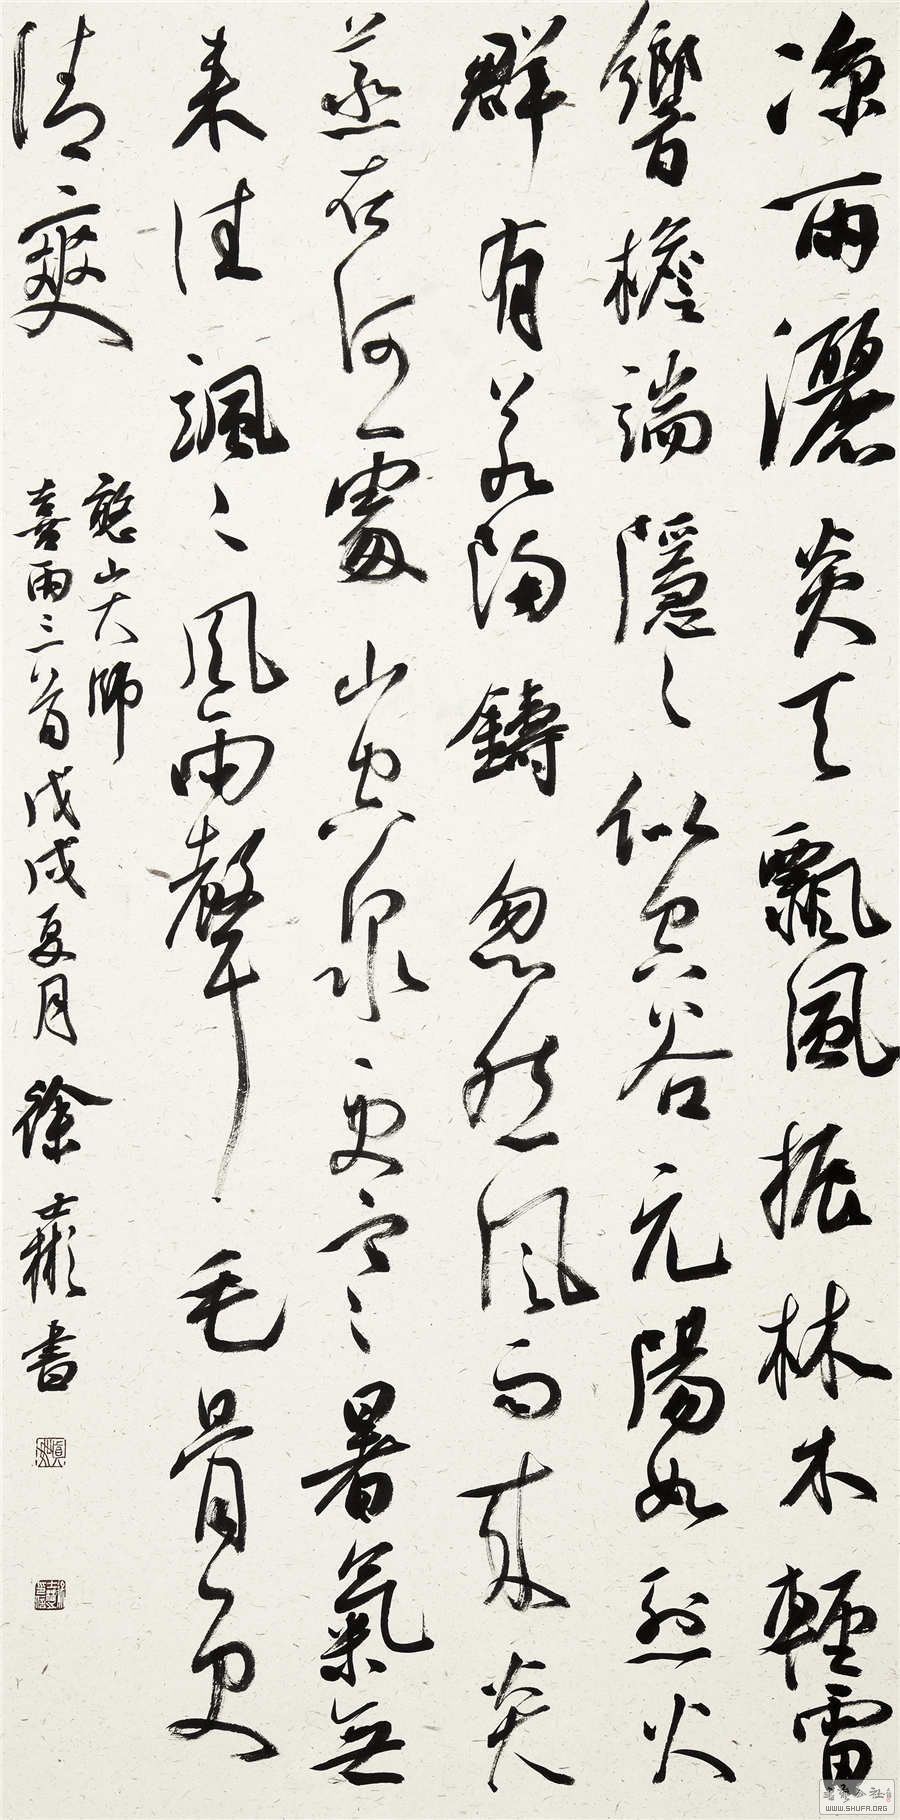 凉雨灑炎天飄風振林木輕雷
響檐端隱々似空谷亢陽如烈火
群有若陶鑄忽然風雨來炎
蒸在何處山空泉更寒暑氣無
来往颯々風雨聲毛骨更
清爽
憨山大師
喜雨三首戊戌夏月徐士彬書
WWW.SHUFA.ORG